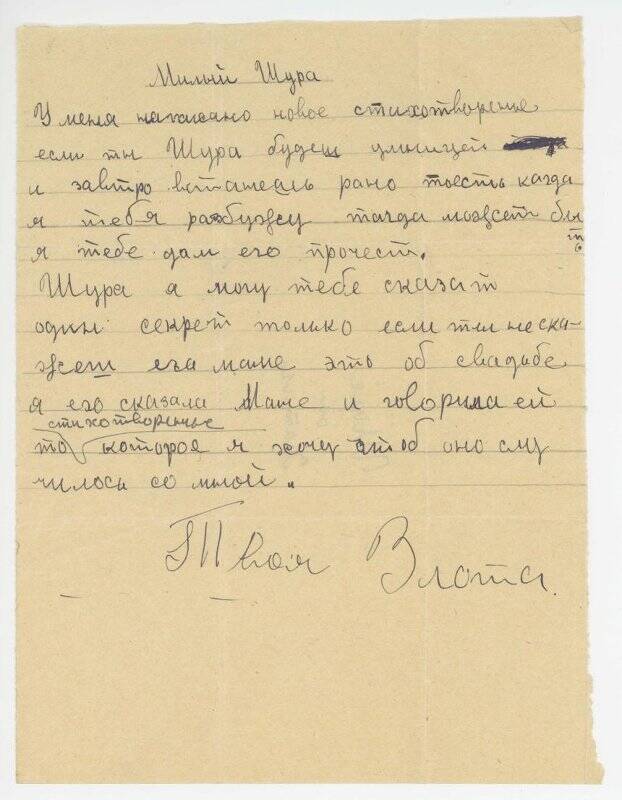 Милый Шура
У меня написано новое стихотворенье
если ты Шура будеш умницей
и завтро встанешь рано тоесть кагда
я тебя разбужу тагда может быть
я тебе дам его прочест.
Шура я могу тебе сказат
один секрет только если ты не ска-
жеш ега маме эть об свадьбе
я его сказала Маше и говорила ей
стихотворенье
то которое я хочу чтоб оно слу
чилось со мной.
Твоя Злота.